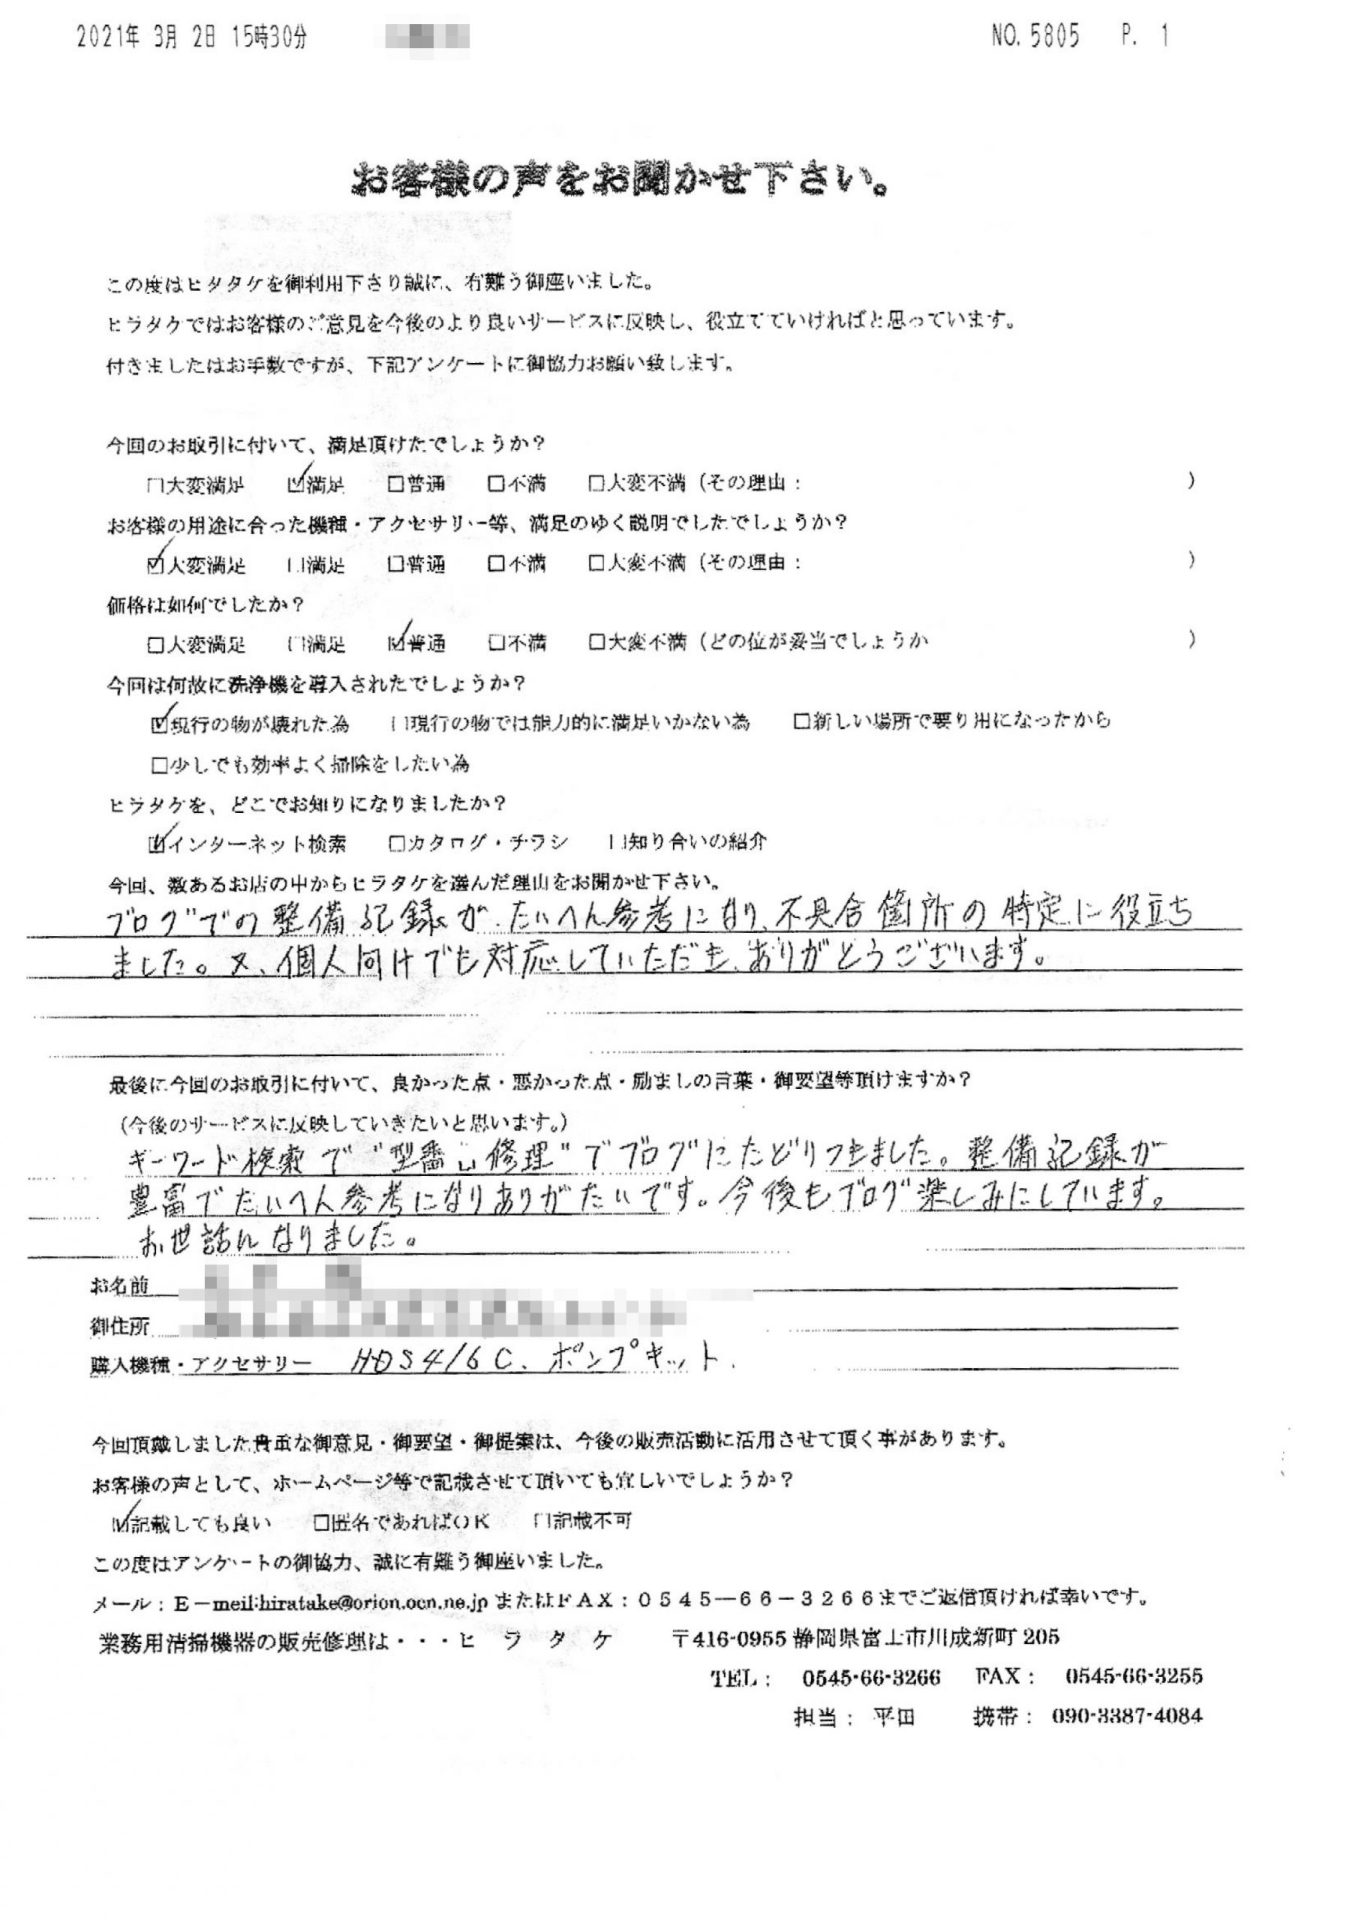 2021年 3月 2日 15時30分 NO. 5805 P. 1
お客様の声をお聞かせ下さい。
この度はヒタタケを御利用下さり誠に、有難う御座いました。
ヒラタケではお客様のご意見を今後のより良いサービスに反映し、役立てていければと思っています。
付きましたはお手数ですが、下記アンケートに御協力お願い致します。
今回のお取引に付いて、満足頂けたでしょうか？
□大変満足 ☑満足 □普通 □不満 □大変不満（その理由： ）
お客様の用途に合った機種・アクセサリー等、満足のゆく説明でしたでしょうか？
☑大変満足 □満足 □普通 □不満 □大変不満（その理由： ）
価格は如何でしたか？
□大変満足 □満足 ☑普通 □不満 □大変不満（どの位が妥当でしょうか ）
今回は何故に洗浄機を導入されたでしょうか？
☑現行の物が壊れた為 □現行の物では能力的に満足いかない為 □新しい場所で要り用になったから
□少しでも効率よく掃除をしたい為
ヒラタケを、どこでお知りになりましたか？
☑インターネット検索 □カタログ・チラシ □知り合いの紹介
今回、数あるお店の中からヒラタケを選んだ理由をお聞かせ下さい。
ブログでの整備記録が、たいへん参考になり、不具合箇所の特定に役立ち
ました。又、個人向けでも対応していただき、ありがとうございます。
最後に今回のお取引に付いて、良かった点・悪かった点・励ましの言葉・御要望等頂けますか？
（今後のサービスに反映していきたいと思います。）
キーワード検索で"型番␣修理"でブログにたどりつきました。整備記録が
豊富でたいへん参考になりありがたいです。今後もブログ楽しみにしています。
お世話んなりました。
お名前
御住所
購入機種・アクセサリー HDS4/6C、ポンプキット
今回頂戴しました貴重な御意見・御要望・御提案は、今後の販売活動に活用させて頂く事があります。
お客様の声として、ホームページ等で記載させて頂いても宜しいでしょうか？
☑記載しても良い □匿名であればOK □記載不可
この度はアンケートの御協力、誠に有難う御座いました。
メール：E－meil:hiratake@orion.ocn.ne.jp またはＦＡＸ：０５４５－６６－３２６６までご返信頂ければ幸いです。
業務用清掃機器の販売修理は・・・ヒ ラ タ ケ 〒416-0955 静岡県富士市川成新町 205
TEL： 0545-66-3266 FAX： 0545-66-3255
担当： 平田 携帯： 090-3387-4084